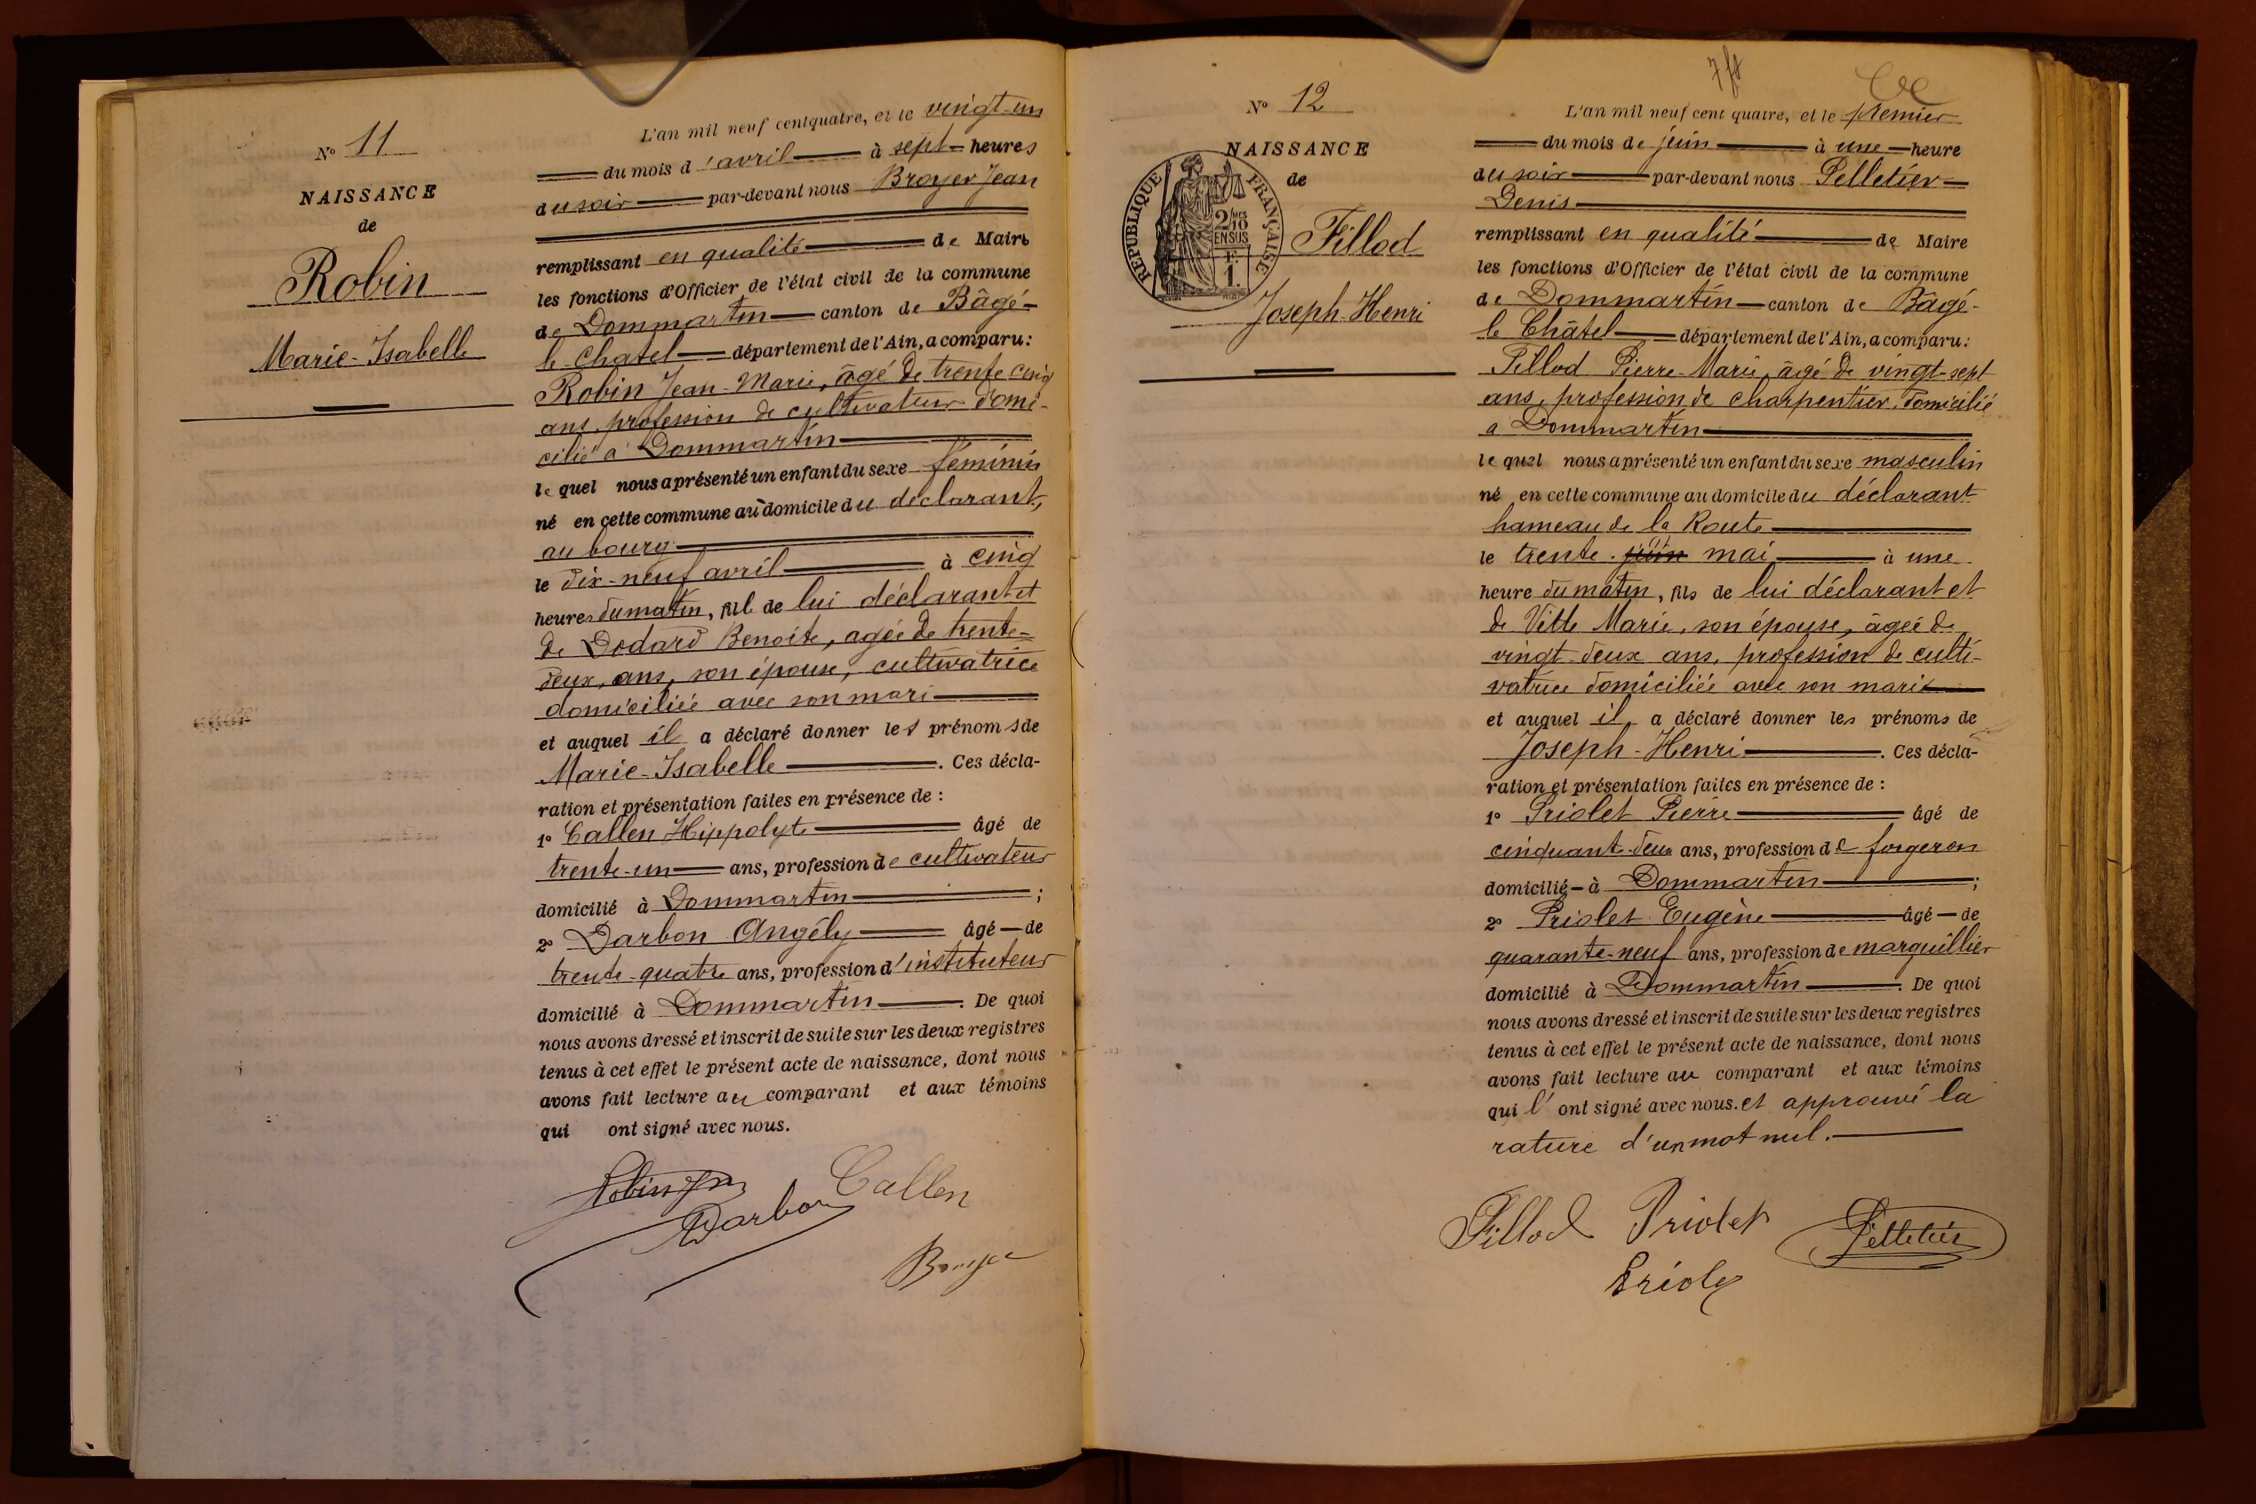 N° 11
NAISSANCE
de
Robin
Marie-Isabelle
L'an mil neuf cent quatre, et le vingt-un
du mois d'avril à sept heures
du soir par-devant nous Broyer Jean
remplissant en qualité de Maire
les fonctions d'Officier de l'état civil de la commune
de Dommartin canton de Bâgé-
le Chatel département de l'Ain, a comparu:
Robin Jean-Marie, âgé de trente cinq
ans, profession de cultivateur domi-
cilié à Dommartin
le quel nous a présenté un enfant du sexe féminin
né en cette commune au domicile du déclarant,
au bourg
le dix-neuf avril à cinq
heures du matin, fill de lui déclarant et
de Dodard Benoite, agée de trente-
deux, ans, son épouse, cultivatrice
domiciliée avec son mari
et auquel il a déclaré donner les prénoms de
Marie-Isabelle. Ces décla-
ration et présentation faites en présence de:
1° Callen Hippolyte âgé de
trente-un ans, profession de cultivateur
domicilié à Dommartin;
2° Darbon Angély âgé de
trente-quatre ans, profession d'instituteur
domicilié à Dommartin. De quoi
nous avons dressé et inscrit de suite sur les deux registres
tenus à cet effet le présent acte de naissance, dont nous
avons fait lecture au comparant et aux témoins
qui ont signé avec nous.
Robin Jn Callen
Darbon
Broyer
N° 12
NAISSANCE
de
RÉPUBLIQUE FRANÇAISE
2/10
EN SUS
1.
Fillod
Joseph-Henri
L'an mil neuf cent quatre, et le premier
du mois de juin à une heure
du soir par-devant nous Pelletier
Denis
remplissant en qualité de Maire
les fonctions d'Officier de l'état civil de la commune
de Dommartin canton de Bâgé-
le Châtel département de l'Ain, a comparu:
Fillod Pierre-Marie, âgé de vingt-sept
ans, profession de charpentier, domicilié
a Dommartin
le quel nous a présenté un enfant du sexe masculin
né en cette commune au domicile du déclarant
hameau de la Route
le trente juin mai à une
heure du matin, fils de lui déclarant et
de Ville Marie, son épouse, âgée de
vingt-deux ans, profession de culti-
vatrice domiciliée avec son mari
et auquel il a déclaré donner les prénoms de
Joseph-Henri. Ces décla-
ration et présentation faites en présence de:
1° Priolet Pierre âgé de
cinquant-deux ans, profession de forgeron
domicilié à Dommartin;
2° Priolet Eugène âgé de
quarante-neuf ans, profession de marguillier
domicilié à Dommartin. De quoi
nous avons dressé et inscrit de suite sur les deux registres
tenus à cet effet le présent acte de naissance, dont nous
avons fait lecture au comparant et aux témoins
qui l'ont signé avec nous. et approuvé la
rature d'un mot nul.
Fillod Priolet Pelletier